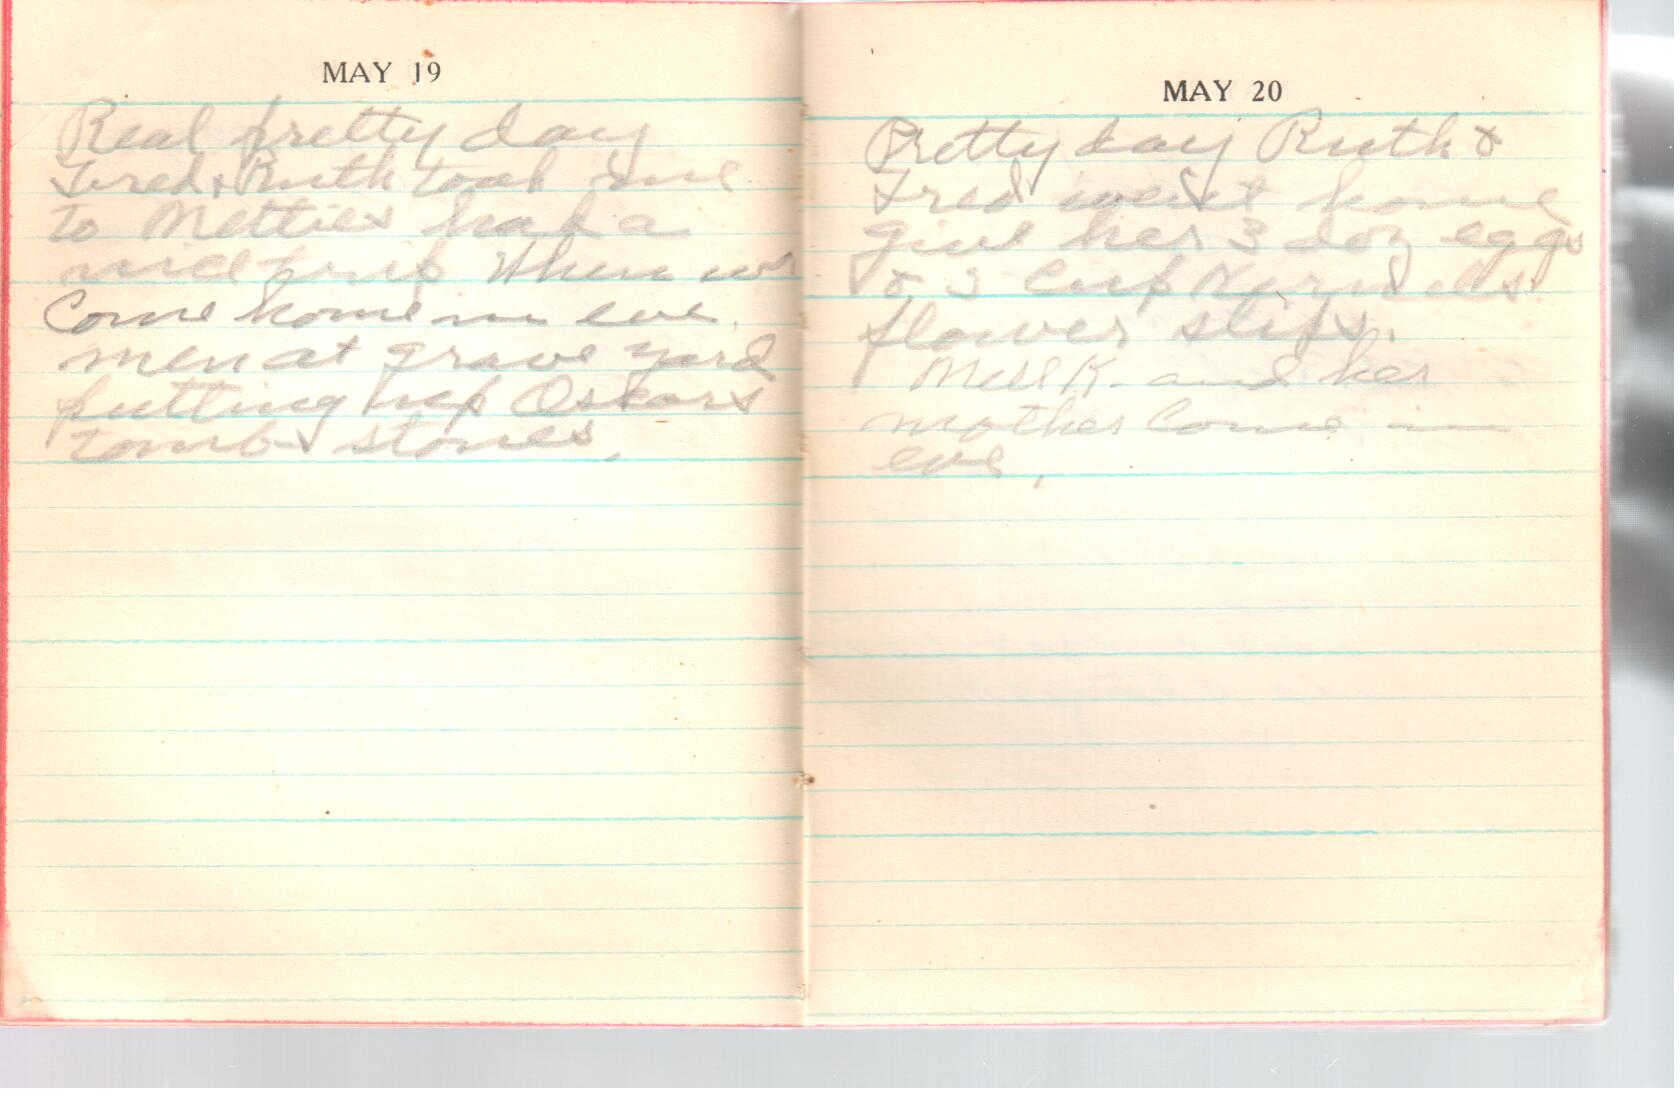 MAY 19
Real pretty day
Fred & Ruth took me
to Netties had a
nice trip When we
Come home in eve.
men at grave yard
putting up Oskars
tomb stones.
MAY 20
Pretty day Ruth &
Fred went home
give her 3 doz eggs
& 3 Cup Kernells
flower slips.
K. and her
mother Come in
eve.